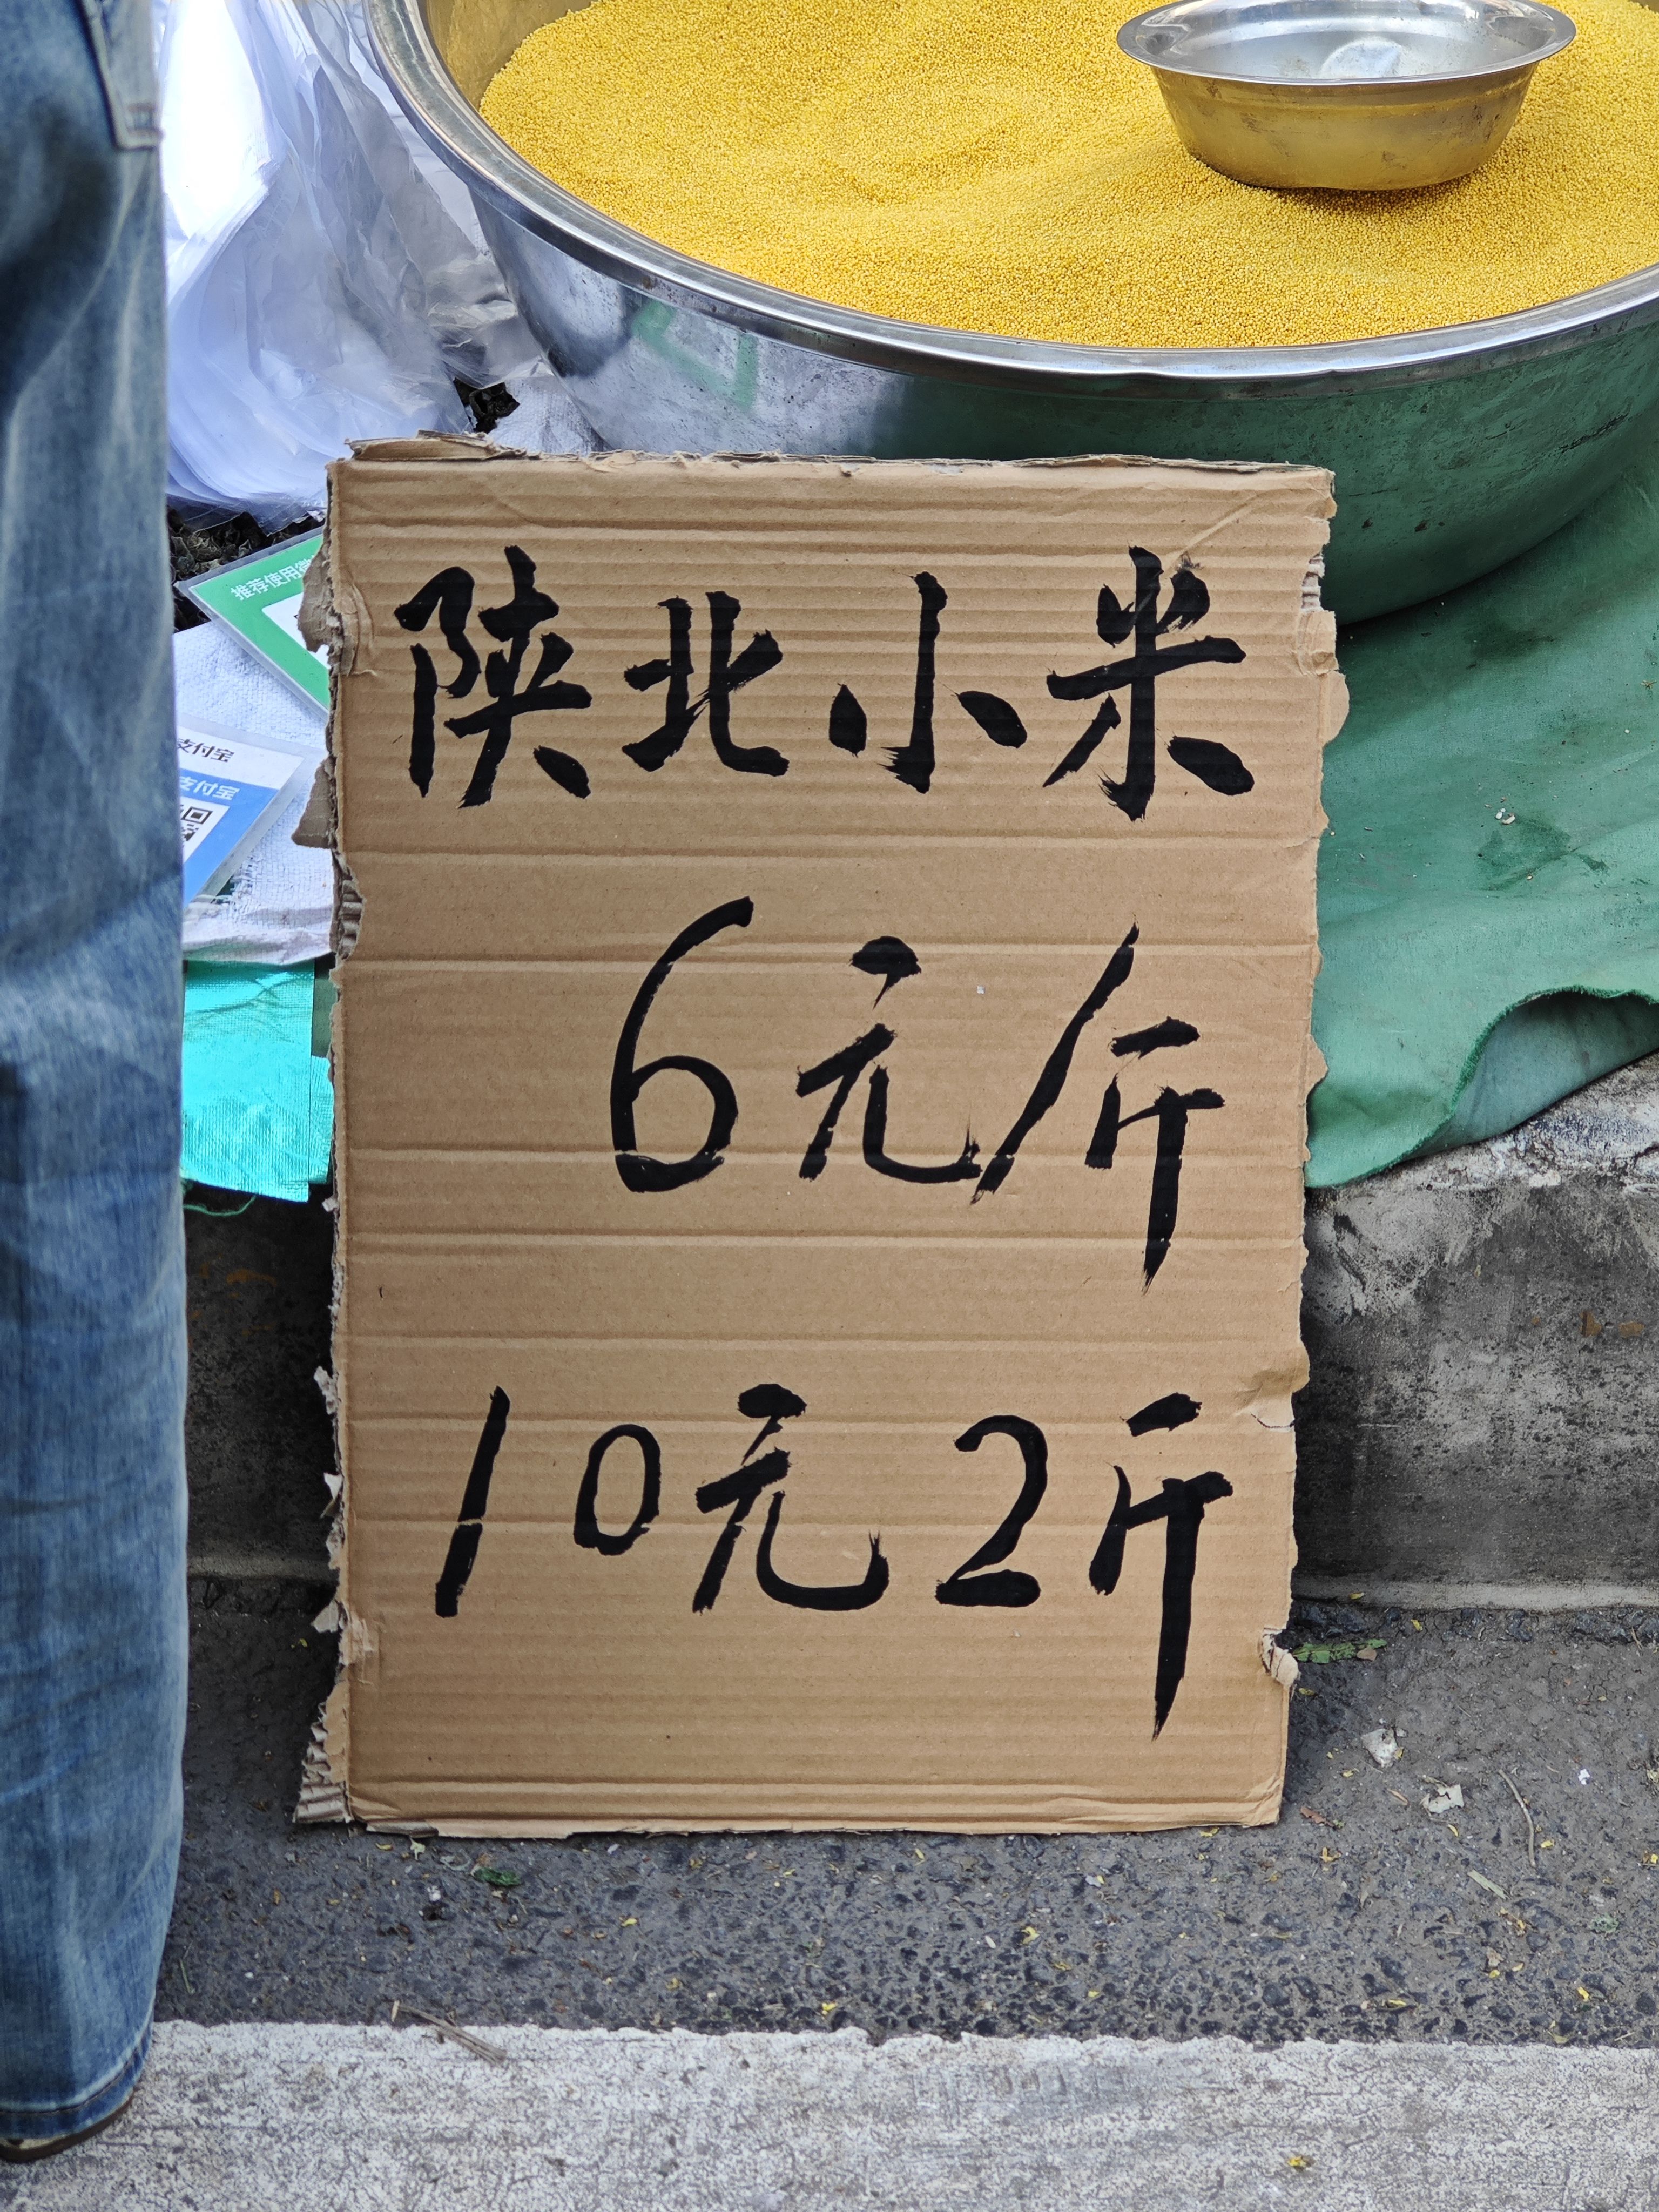 陕北小米
6元/斤
10元2斤
推荐使用微
支付宝
支付宝